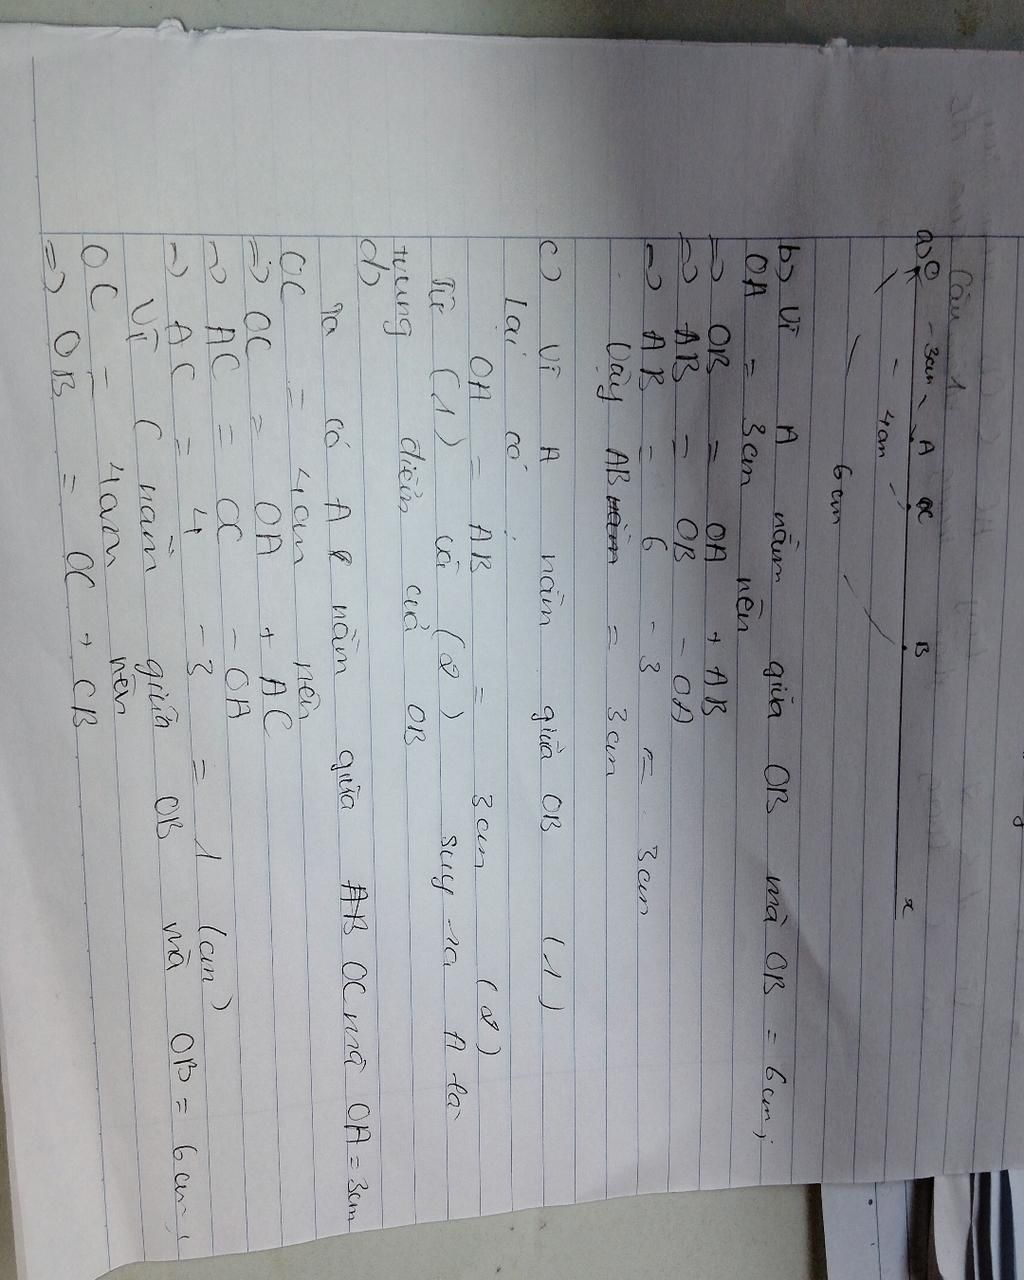 Câu 1
a) O - 3cm - A C B x
4cm
6 cm
b) Vì A nằm giữa OB mà OB = 6 cm;
OA = 3cm nên
=> OB = OA + AB
=> AB = OB - OA
=> AB = 6 - 3 = 3cm
Vậy AB = 3cm
c) Vì A nằm giữa OB (1)
Lại có
OA = AB = 3cm (2)
Từ (1) và (2) suy ra A là
trung điểm cuả OB
d)
Ta có A nằm giữa OC mà OA = 3cm
OC = 4cm nên
=> OC = OA + AC
=> AC = OC - OA
=> AC = 4 - 3 = 1 (cm)
Vì C nằm giữa OB mà OB = 6cm,
OC = 4cm nên
=> OB = OC + CB